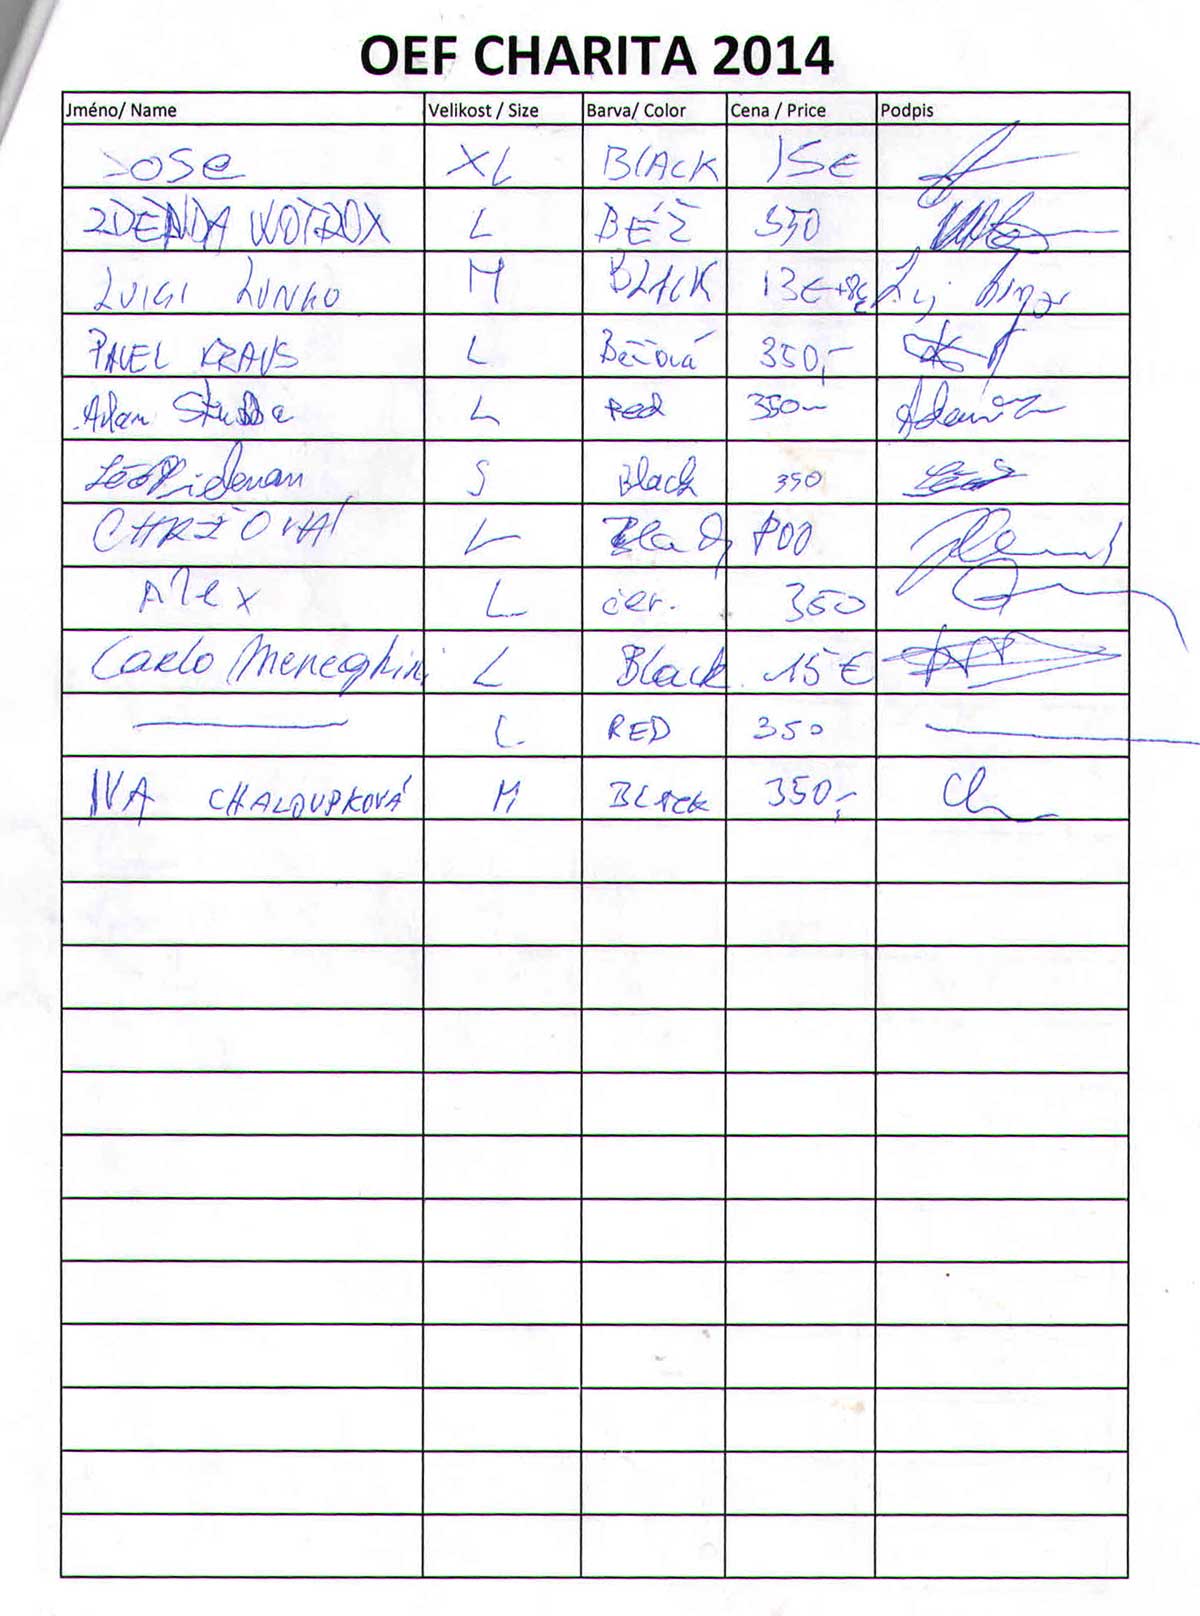 OEF CHARITA 2014
Jméno/ Name Velikost / Size Barva/ Color Cena / Price Podpis
Jose XL BlACK 15€
ZDENDA WOTROX L BÉŽ 350
LUIGI LUNGO M BLACK 13€+8€
PAVEL KRAUS L Béžová 350,-
Adam L Red 350,-
S Black 350
L 800
Alex L čer. 350
Carlo Meneghini L Black 15€
L RED 350
IVA CHALOUPKOVÁ M BLACK 350,-